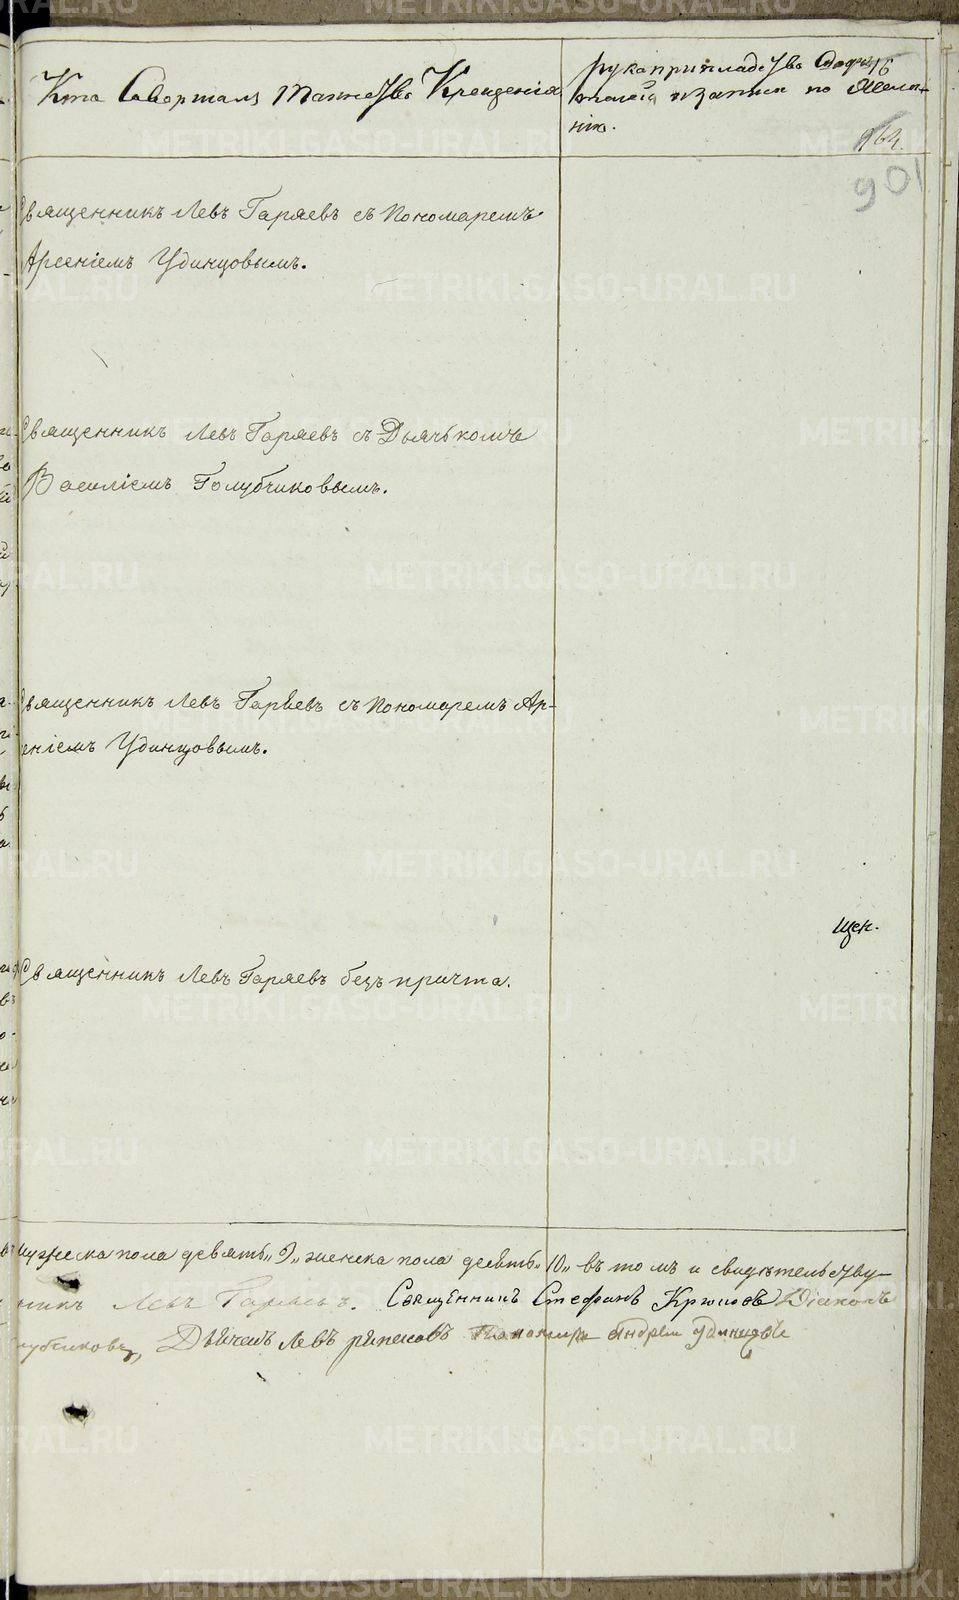 Кто Совершалъ таинство Крещенія
рукоприкладство свидѣ
тельей записи по Жела-
нію.
964.
901
Священникъ Левъ Гаряевъ съ Пономаремъ
Арсеніемъ Удинцовымъ.
Священникъ Левъ Гаряевъ съ Дьячькомъ
Василіемъ Голубчиковымъ.
Священникъ Левъ Гаряевъ съ Пономаремъ Ар-
еніемъ Удинцовымъ.
щен.
Священникъ Левъ Гаряевъ безъ причта.
мужеска пола девять „9„ женска пола десять „10„ въ томъ и свидѣтельству-
никъ Левъ Гаряевъ. Священникъ Стефанъ Діаконъ
Дьячекъ Левъ Пономарь Андрей Удинцовъ
METRIKI.GASO-URAL.RU